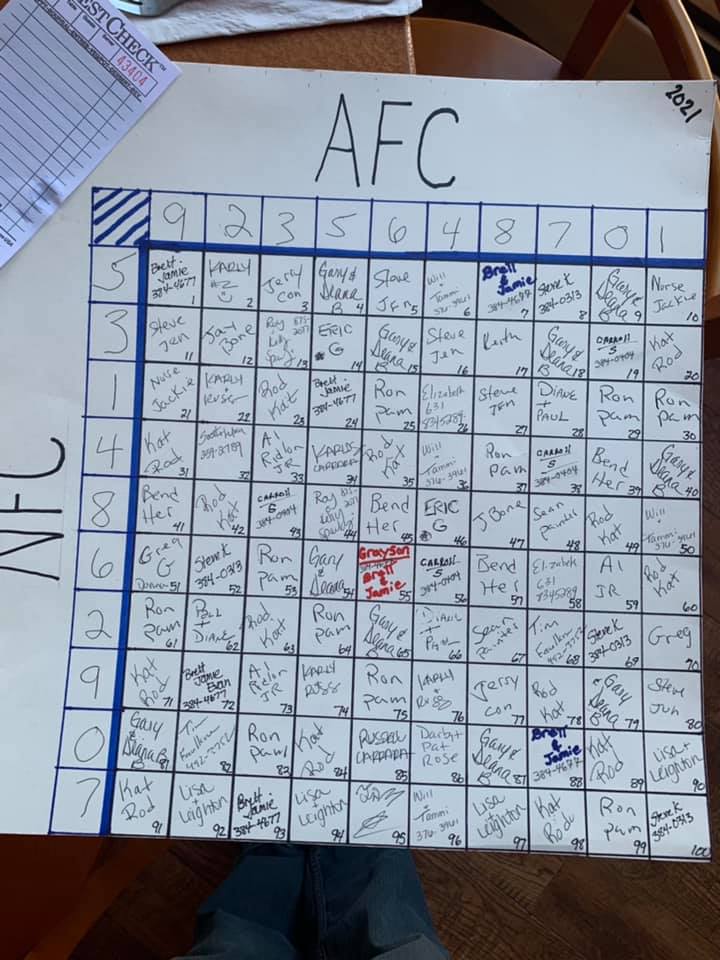 EST CHECK™
43404
2021
AFC
NFC
9 2 3 5 6 4 8 7 0 1
5
Brett Jamie 384-4677 1
KARLY #2 2
Jerry Con 3
Gary & Deana B 4
Steve Jen 5
Will + Tammi 6
Brett & Jamie 384-4677 7
Steve K 384-0313 8
Gary & Deana B 9
Nurse Jackie 10
3
Steve Jen 11
Jay Bone 12
Roy 13
ERIC G 14
Gary & Deana B 15
Steve Jen 16
Keith 17
Gary & Deana B 18
CARROLL S 384-0404 19
Kat Rod 20
1
Nurse Jackie 21
KARLY 22
Rod Kat 23
Brett Jamie 384-4677 24
Ron Pam 25
Elizabeth 631 26
Steve Jen 27
DIANE + PAUL 28
Ron Pam 29
Ron Pam 30
4
Kat Rod 31
32
Al Ridlor JR 33
34
Rod Kat 35
Will + Tammi 36
Ron Pam 37
CARROLL S 384-0404 38
Bend Her 39
Gary & Deana B 40
8
Bend Her 41
Rod Kat 42
CARROLL S 384-0404 43
Roy 44
Bend Her 45
ERIC G 46
J Bone 47
Sean painter 48
Rod Kat 49
Will + Tammi 50
6
Greg G 51
Steve K 384-0313 52
Ron Pam 53
Gary & Deana 54
Grayson Brett & Jamie 55
CARROLL S 384-0404 56
Bend Her 57
Elizabeth 631 58
Al JR 59
Rod Kat 60
2
Ron Pam 61
Paul + DIANE 62
Rod Kat 63
Ron Pam 64
Gary & Deana B 65
DIANE + Paul 66
Sean painter 67
Tim Faulkner 68
Steve K 384-0313 69
Greg 70
9
Kat Rod 71
Brett Jamie Evan 384-4677 72
Al Ridlor JR 73
KARLY 74
Ron Pam 75
KARLY 76
Jerry Con 77
Rod Kat 78
Gary & Deana B 79
Steve Jen 80
0
Gary & Deana B 81
Tim Faulkner 82
Ron Pam 83
Kat Rod 84
RUSSELL 85
Darby + Pat Rose 86
Gary & Deana B 87
Brett & Jamie 384-4677 88
Kat Rod 89
Lisa + Leighton 90
7
Kat Rod 91
Lisa + Leighton 92
Brett + Jamie 384-4677 93
Lisa + Leighton 94
95
Will + Tammi 96
Lisa + Leighton 97
Kat Rod 98
Ron Pam 99
Steve K 384-0313 100